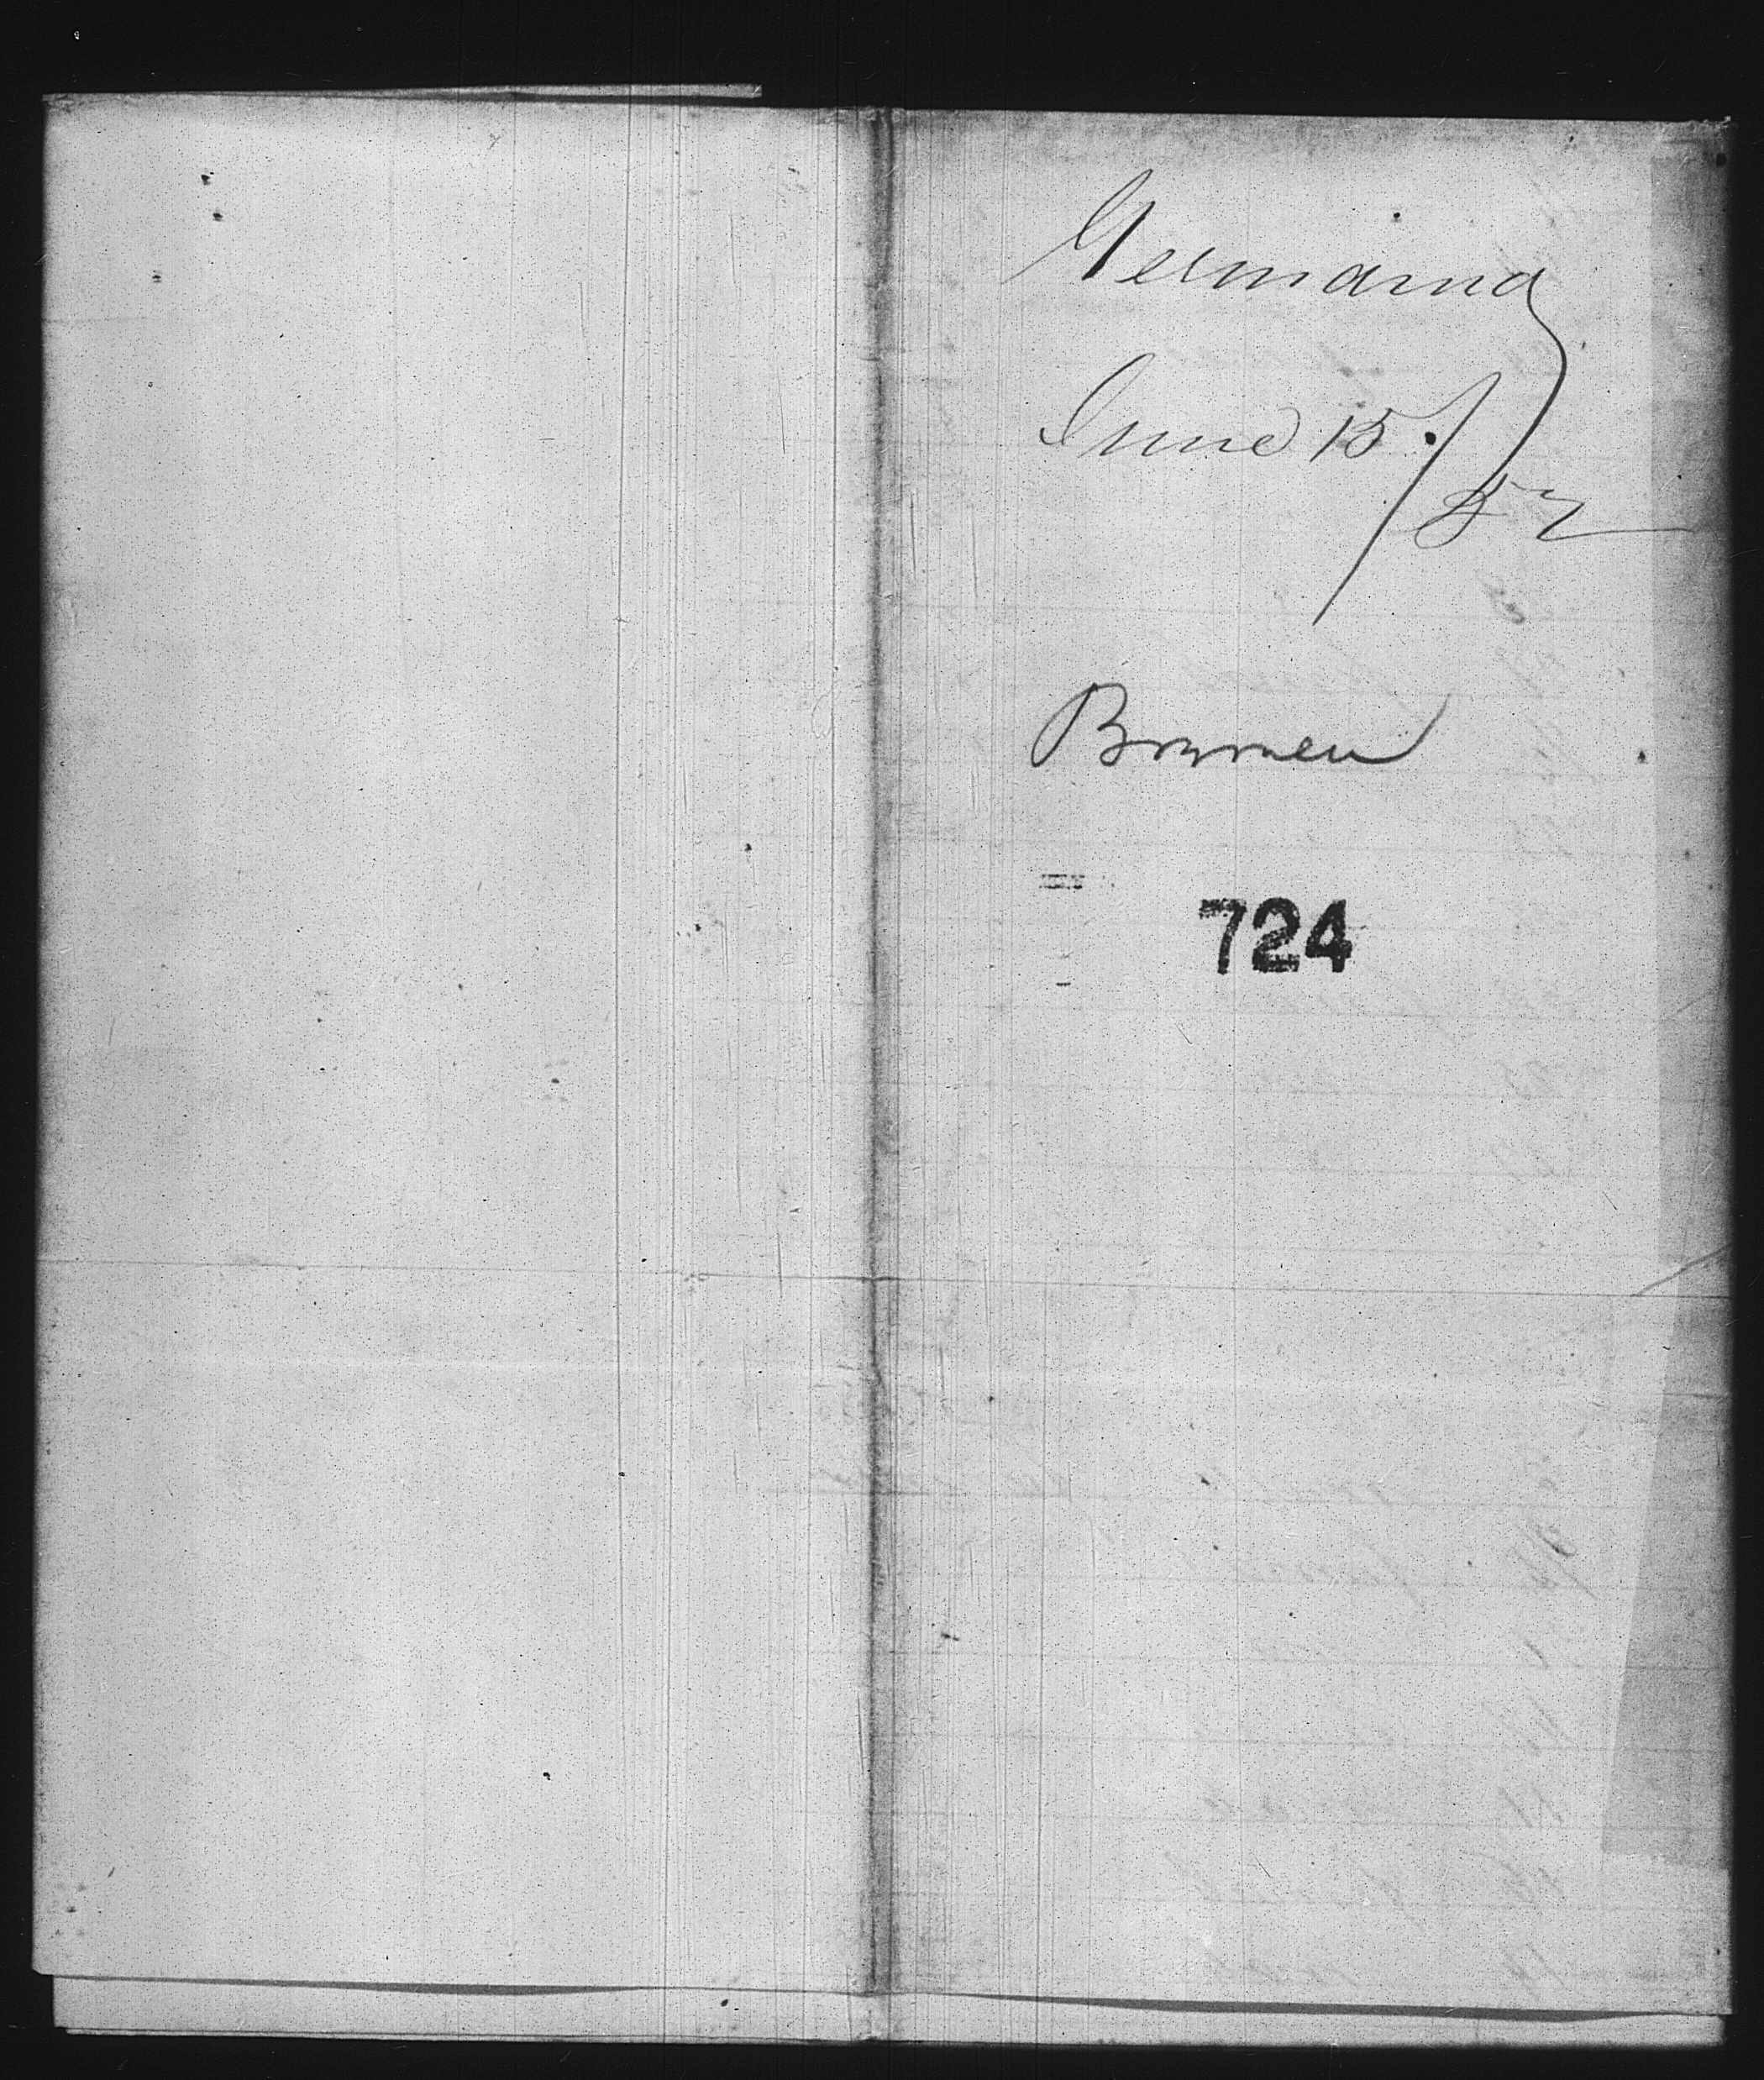 Germania
June 15/52
Bremen
724